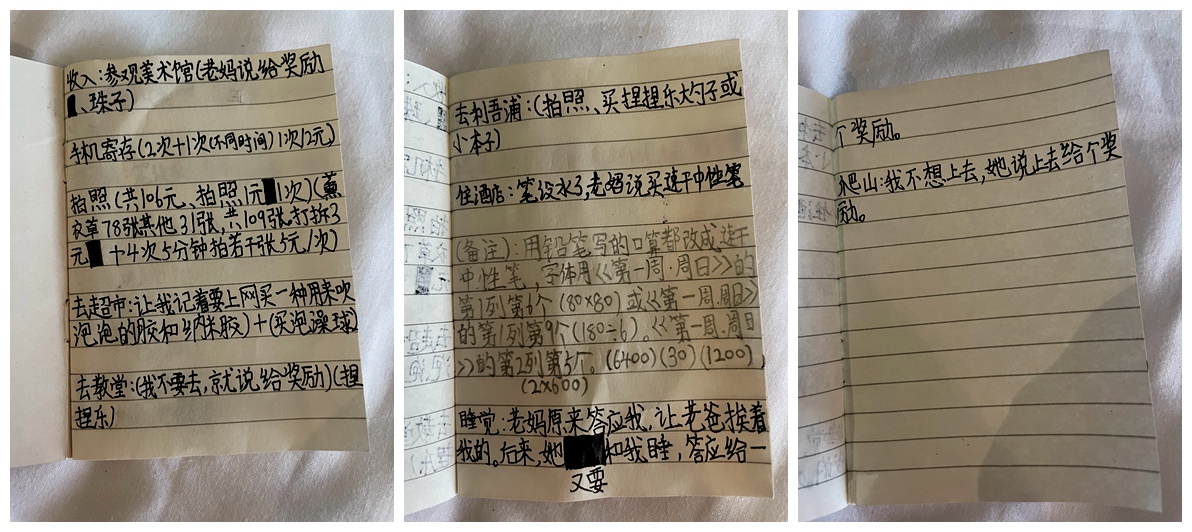 收入:参观美术馆(老妈说给奖励
、珠子)
手机寄存(2次+1次(不同时间)1次12元)
拍照(共106元、拍照1元1次)(薰
衣草78张其他31张,共109张.打折3
元 +4次5分钟拍若干张5元/次)
去超市:让我记着要上网买一种用来吹
泡泡的胶和纳米胶)+(买泡澡球)
去教堂:(我不要去,就说给奖励)(捏
捏乐)
去利吾浦:(拍照、买捏捏乐大勺子或
小本子)
住酒店:笔没水了,老妈说买速干中性笔
(备注):用铅笔写的口算都改成速干
中性笔,字体用《《第一周·周日》》的
第1列第6个(80×80)或《《第一周.周日》》
的第1列第9个(180÷6)。《《第一周.周日
》》的第2列第5个。(6400)(30)(1200),
(2×600)
睡觉:老妈原来答应我,让老爸挨着
我的。后来,她 和我睡,答应给一
又要
个奖励。
爬山:我不想上去,她说上去给个奖
励。